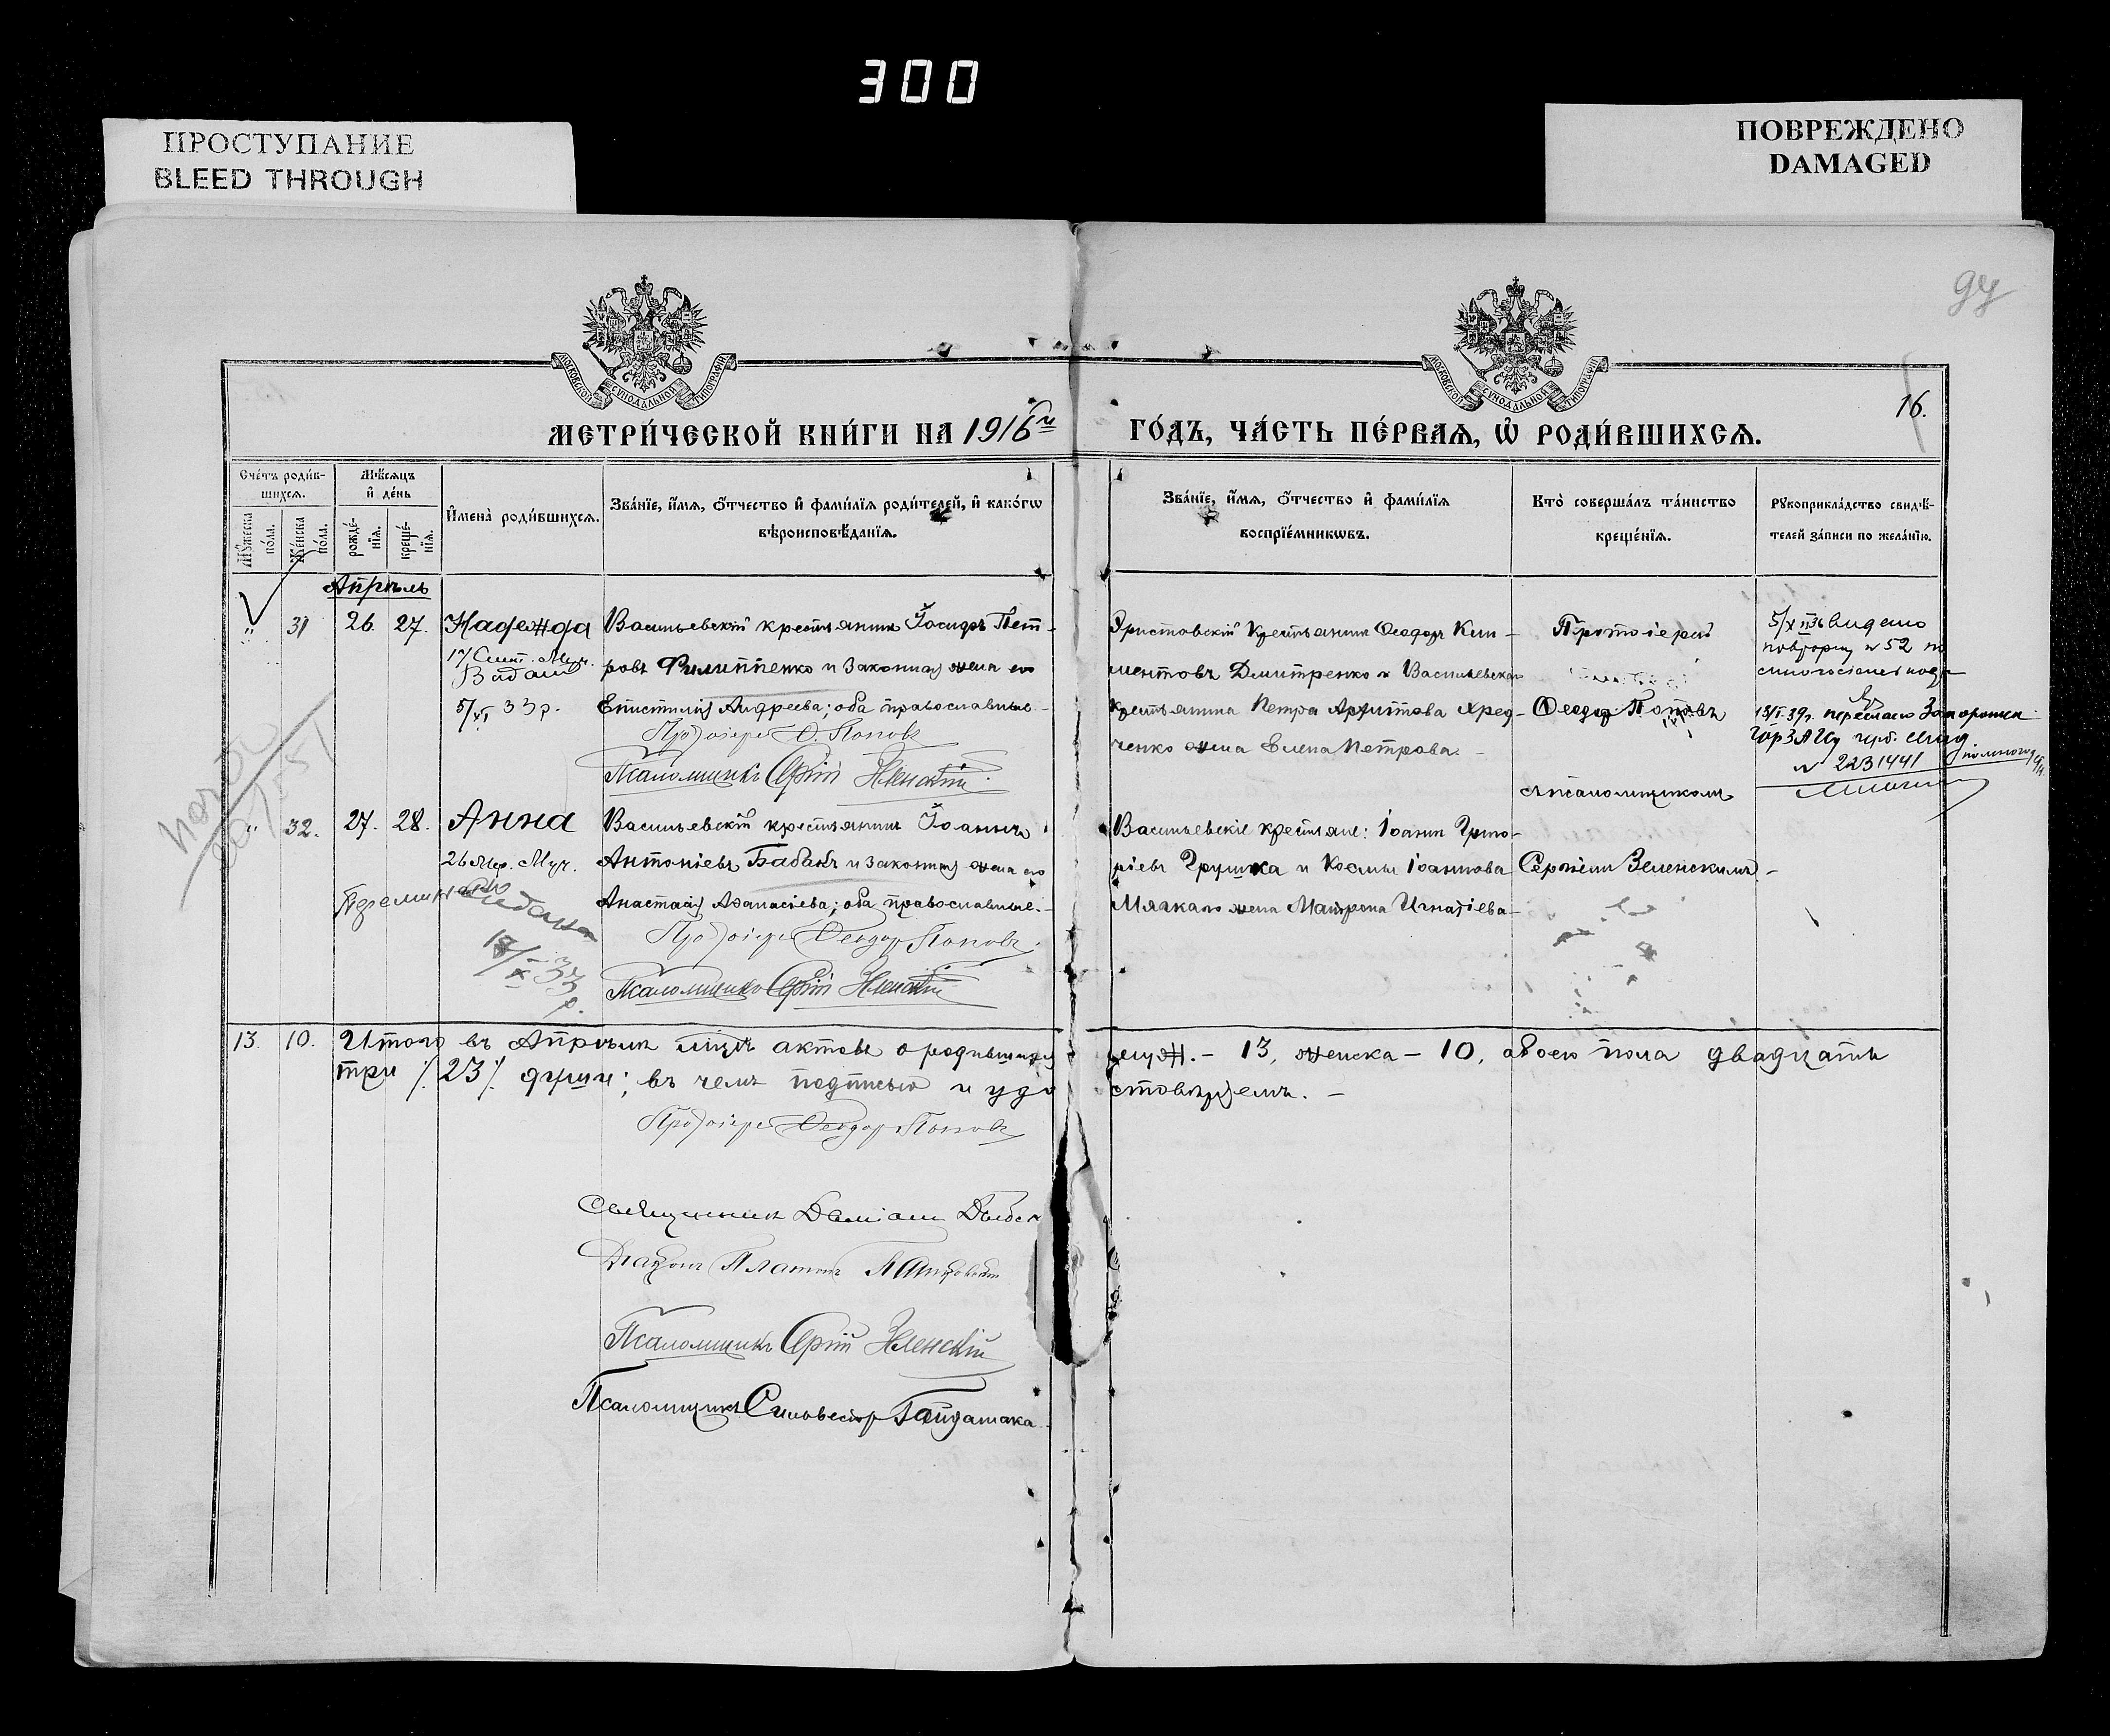 300
ПРОСТУПАНИЕ
BLEED THROUGH
ПОВРЕЖДЕНО
DAMAGED
МОСКОВСКОЙ СѴНОДАЛЬНОЙ ТИПОГРАФІИ
МОСКОВСКОЙ СѴНОДАЛЬНОЙ ТИПОГРАФІИ
16.
МЕТРИ́ЧЕСКОЙ КНИ́ГИ НА 1916й ГО́ДЪ, ЧА́СТЬ ПЕ́РВАЯ, Ѡ҆ РОДИ́ВШИХСЯ.
Сче́тъ роди́в-
шихся.
Му́жеска по́ла.
Же́нска по́ла.
Мѣ́сяцъ
и҆ де́нь
рожде́-
нїя.
креще́-
нїя.
И҆мена̀ роди́вшихся.
Зва́нїе, и҆́мя, ѻ҆́тчество и҆ фами́лїя роди́телей, и҆ како́гѡ
вѣроисповѣ́данїя.
Зва́нїе, и҆́мя, ѻ҆́тчество и҆ фами́лїя
воспрїе́мникѡвъ.
Кто̀ соверша́лъ та́инство
креще́нїя.
Рꙋкоприкла́дство свидѣ́-
телей за́писи по жела́нїю.
Апрѣль
" 31 26. 27. Надежда
17 Сент. Муч.
5/XI 33р.
Васильевскій крестьянинъ Іосифъ Пет-
ровъ Филиппенко и законная жена его
Епистимія Андреева; оба православные.-
Протоіерей Ѳ. Поповъ
Псаломщикъ Сергій Зеленскій
Эристовскій крестьянинъ Ѳеодоръ Кли-
ментовъ Дмитренко и Васильевска
крестьянина Петра
ченко жена Елена Петрова. -
Протоіерей
Ѳеодор Поповъ
с псаломщикомъ
Сергіемъ Зеленскимъ. -
5/X II 36 Видано
повторну № 52
13/I. 39р. переслано Запорожск
№ 2231441
" 32. 27. 28. Анна
26 Мар. Муч.
Васильевскій крестьянинъ Іоаннъ
Антоніевъ Бабакъ и законная жена его
Анастасія Аѳанасіева; оба православные.-
Протоіерей Ѳеодор Поповъ
Псаломщикъ Сергій Зеленскій
Васильевскіе крестьяне: Іоанн Григо-
ріевъ Грушка и Космы Іоаннова
жена Матрона Игнатіева-
13. 10. Итого въ Апрѣлѣ мцѣ актовъ о родившихся муж. - 13, женска - 10, обоего пола двадцать
три /.23/. души; въ чемъ подписью и удостовѣряемъ. -
Протоіерей Ѳеодор Поповъ
Священник Даміан
Діаконъ Платонъ
Псаломщикъ Сергій Зеленскій
Псаломщикъ Сильвестр Гайдамака